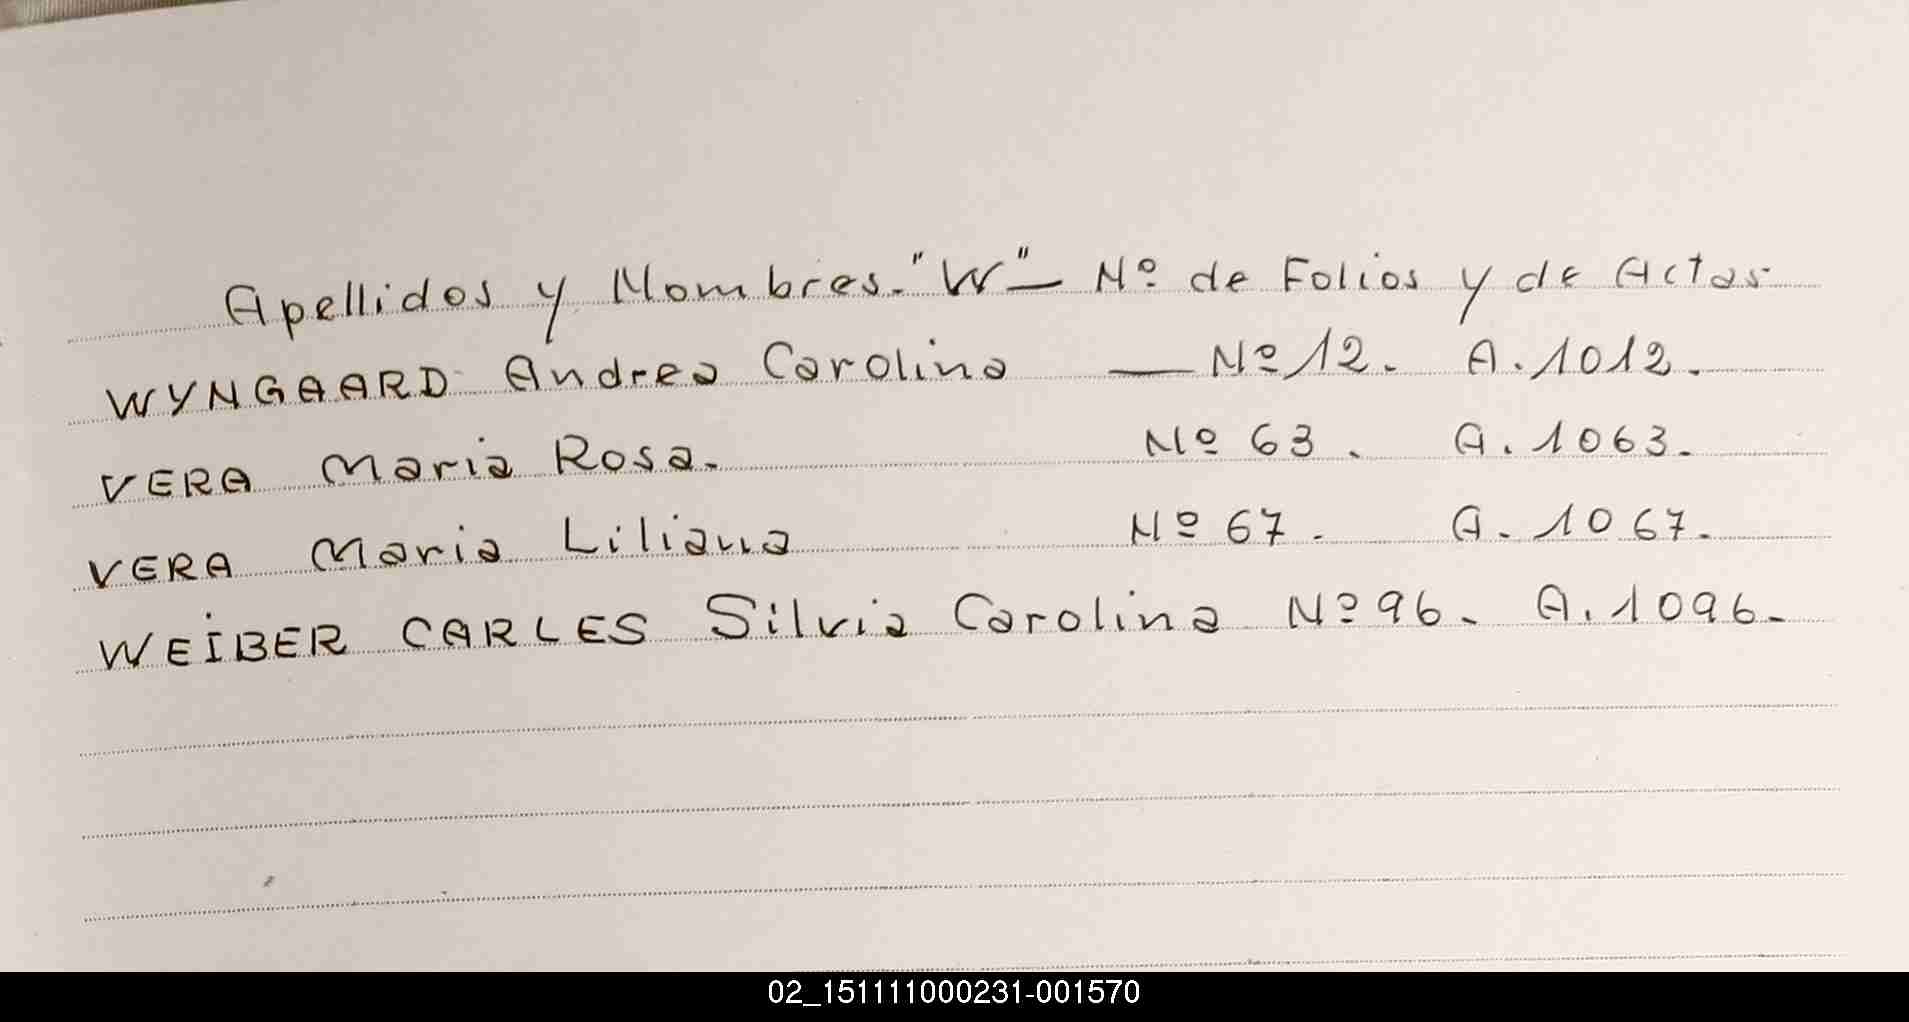 Apellidos y Nombres. "W" — Nº de Folios y de Actas
WYNGAARD Andrea Carolina — Nº 12. A. 1012.
VERA Maria Rosa. Nº 63. A. 1063.
VERA Maria Liliana Nº 67. A. 1067.
WEIBER CARLES Silvia Carolina Nº 96. A. 1096.
02_151111000231-001570